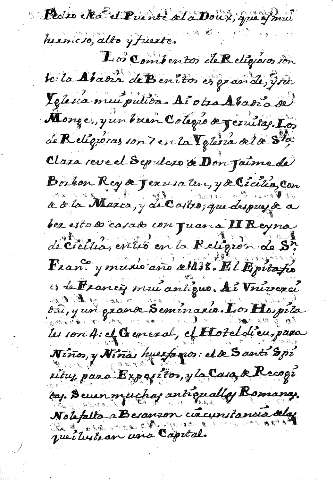 Pedro el Puente de la Doux, que es mui
hermoso, alto y fuerte.
Los Combentos de Religiosos son
la Abadia de Benitos es grande, y su
Yglesia mui pulida. Ai otra Abadia de
Monges, y un buen Colegio de Jesuitas. Los
de Religiosas son 7 en la Yglesia del de Sta.
Clara se ve el Sepulcro de Don Jaime de
Borbon Rey de Jerusalen, y de Cicilia, Con
de de la Marca, y de Castro, que despues de a
ber estado casado con Juana II Reyna
de Cicilia, entró en la Religion de Sn.
Franco. y murio año de 1438. El Epitafio
es de Frances mui antiguo. Ai Vniverci
dad, y un grande Seminario. Los Hospita
les son 4: el General, el Hotel dieu, para
Niños, y Niñas huerfanos: el de Santi Spi
ritus, para Expositos, y la Casa de Recogi
das. Se ven muchas antiguallas Romanas.
No le falta a Besanzon circunstancia de las
que ilustran una Capital.